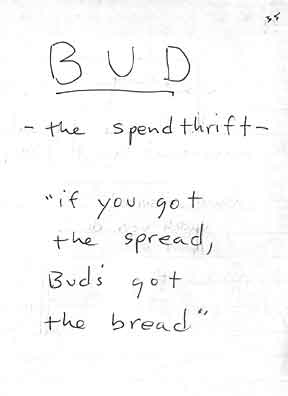 35
BUD
- the spendthrift -
"if you got
the spread,
Bud's got
the bread"